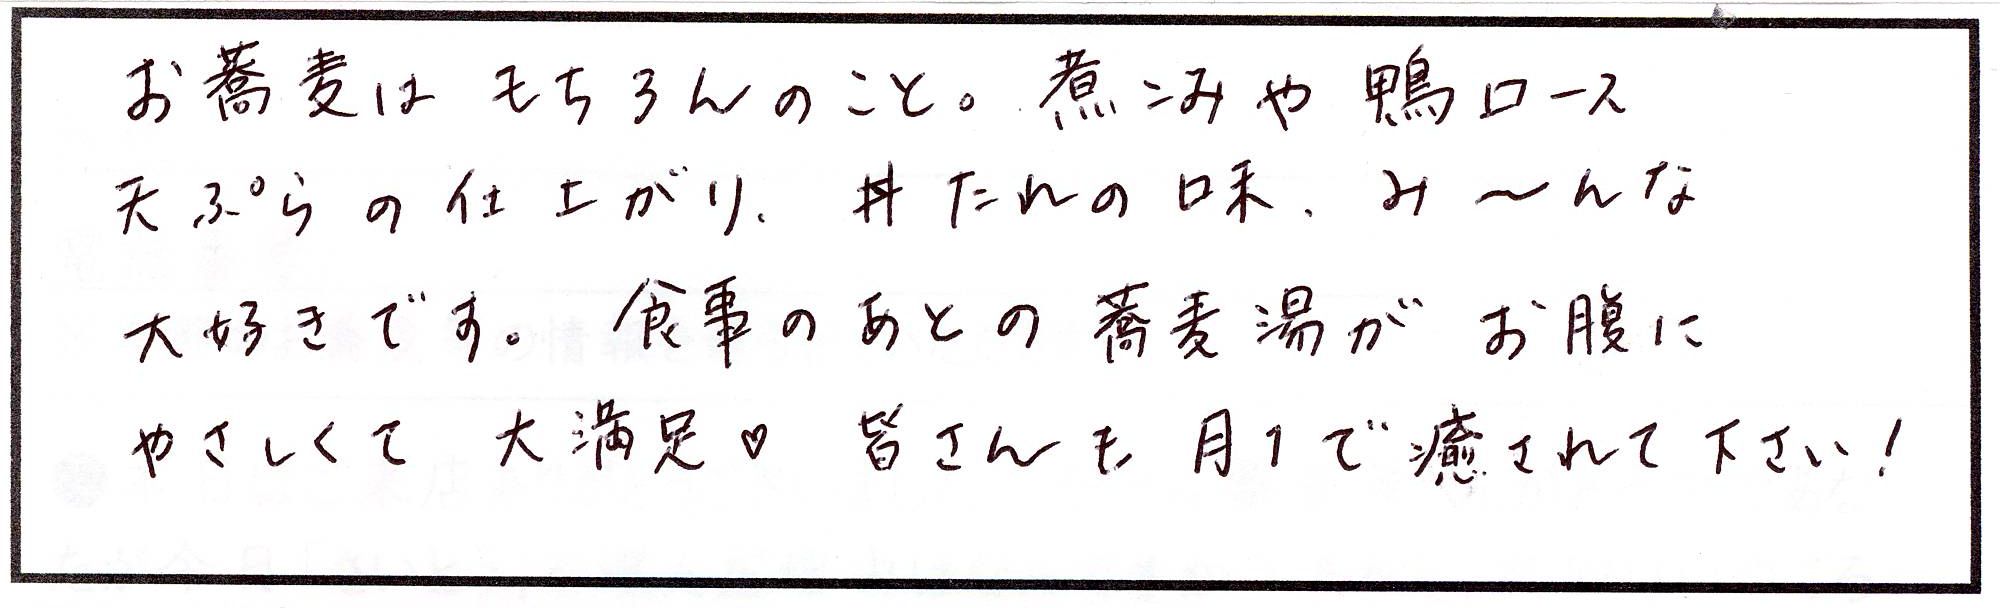 お蕎麦は もちろんのこと。煮こみや 鴨ロース
天ぷらの仕上がり、丼たれの味、み〜んな
大好きです。 食事のあとの蕎麦湯が お腹に
やさしくて 大満足♡ 皆さんも 月1で癒されて下さい!